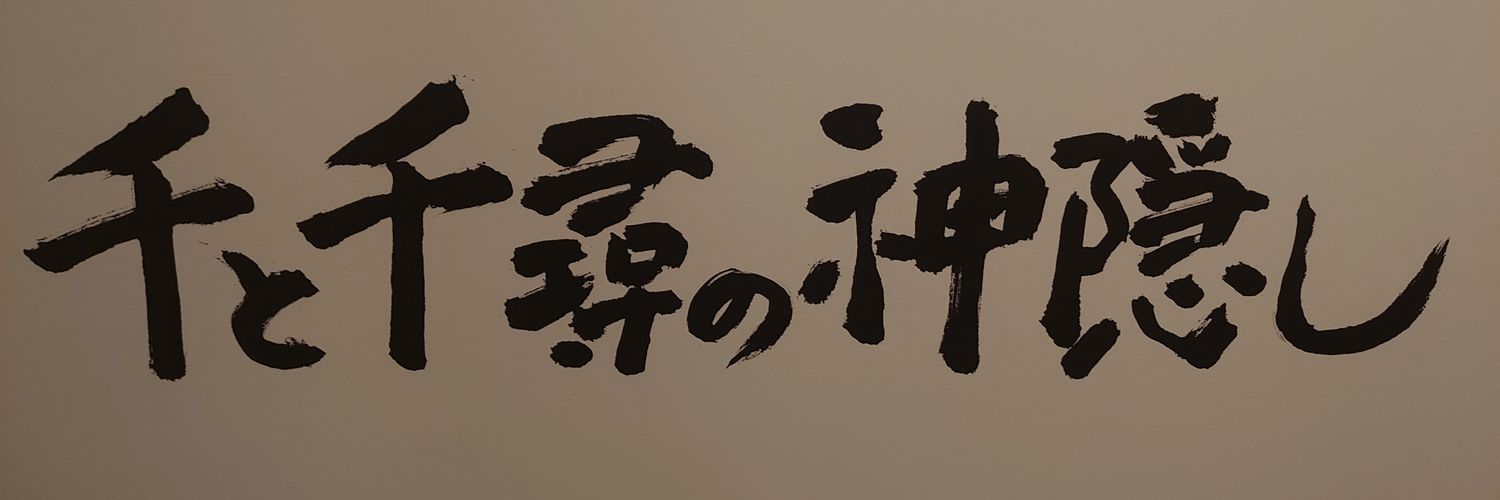 千と千尋の神隠し